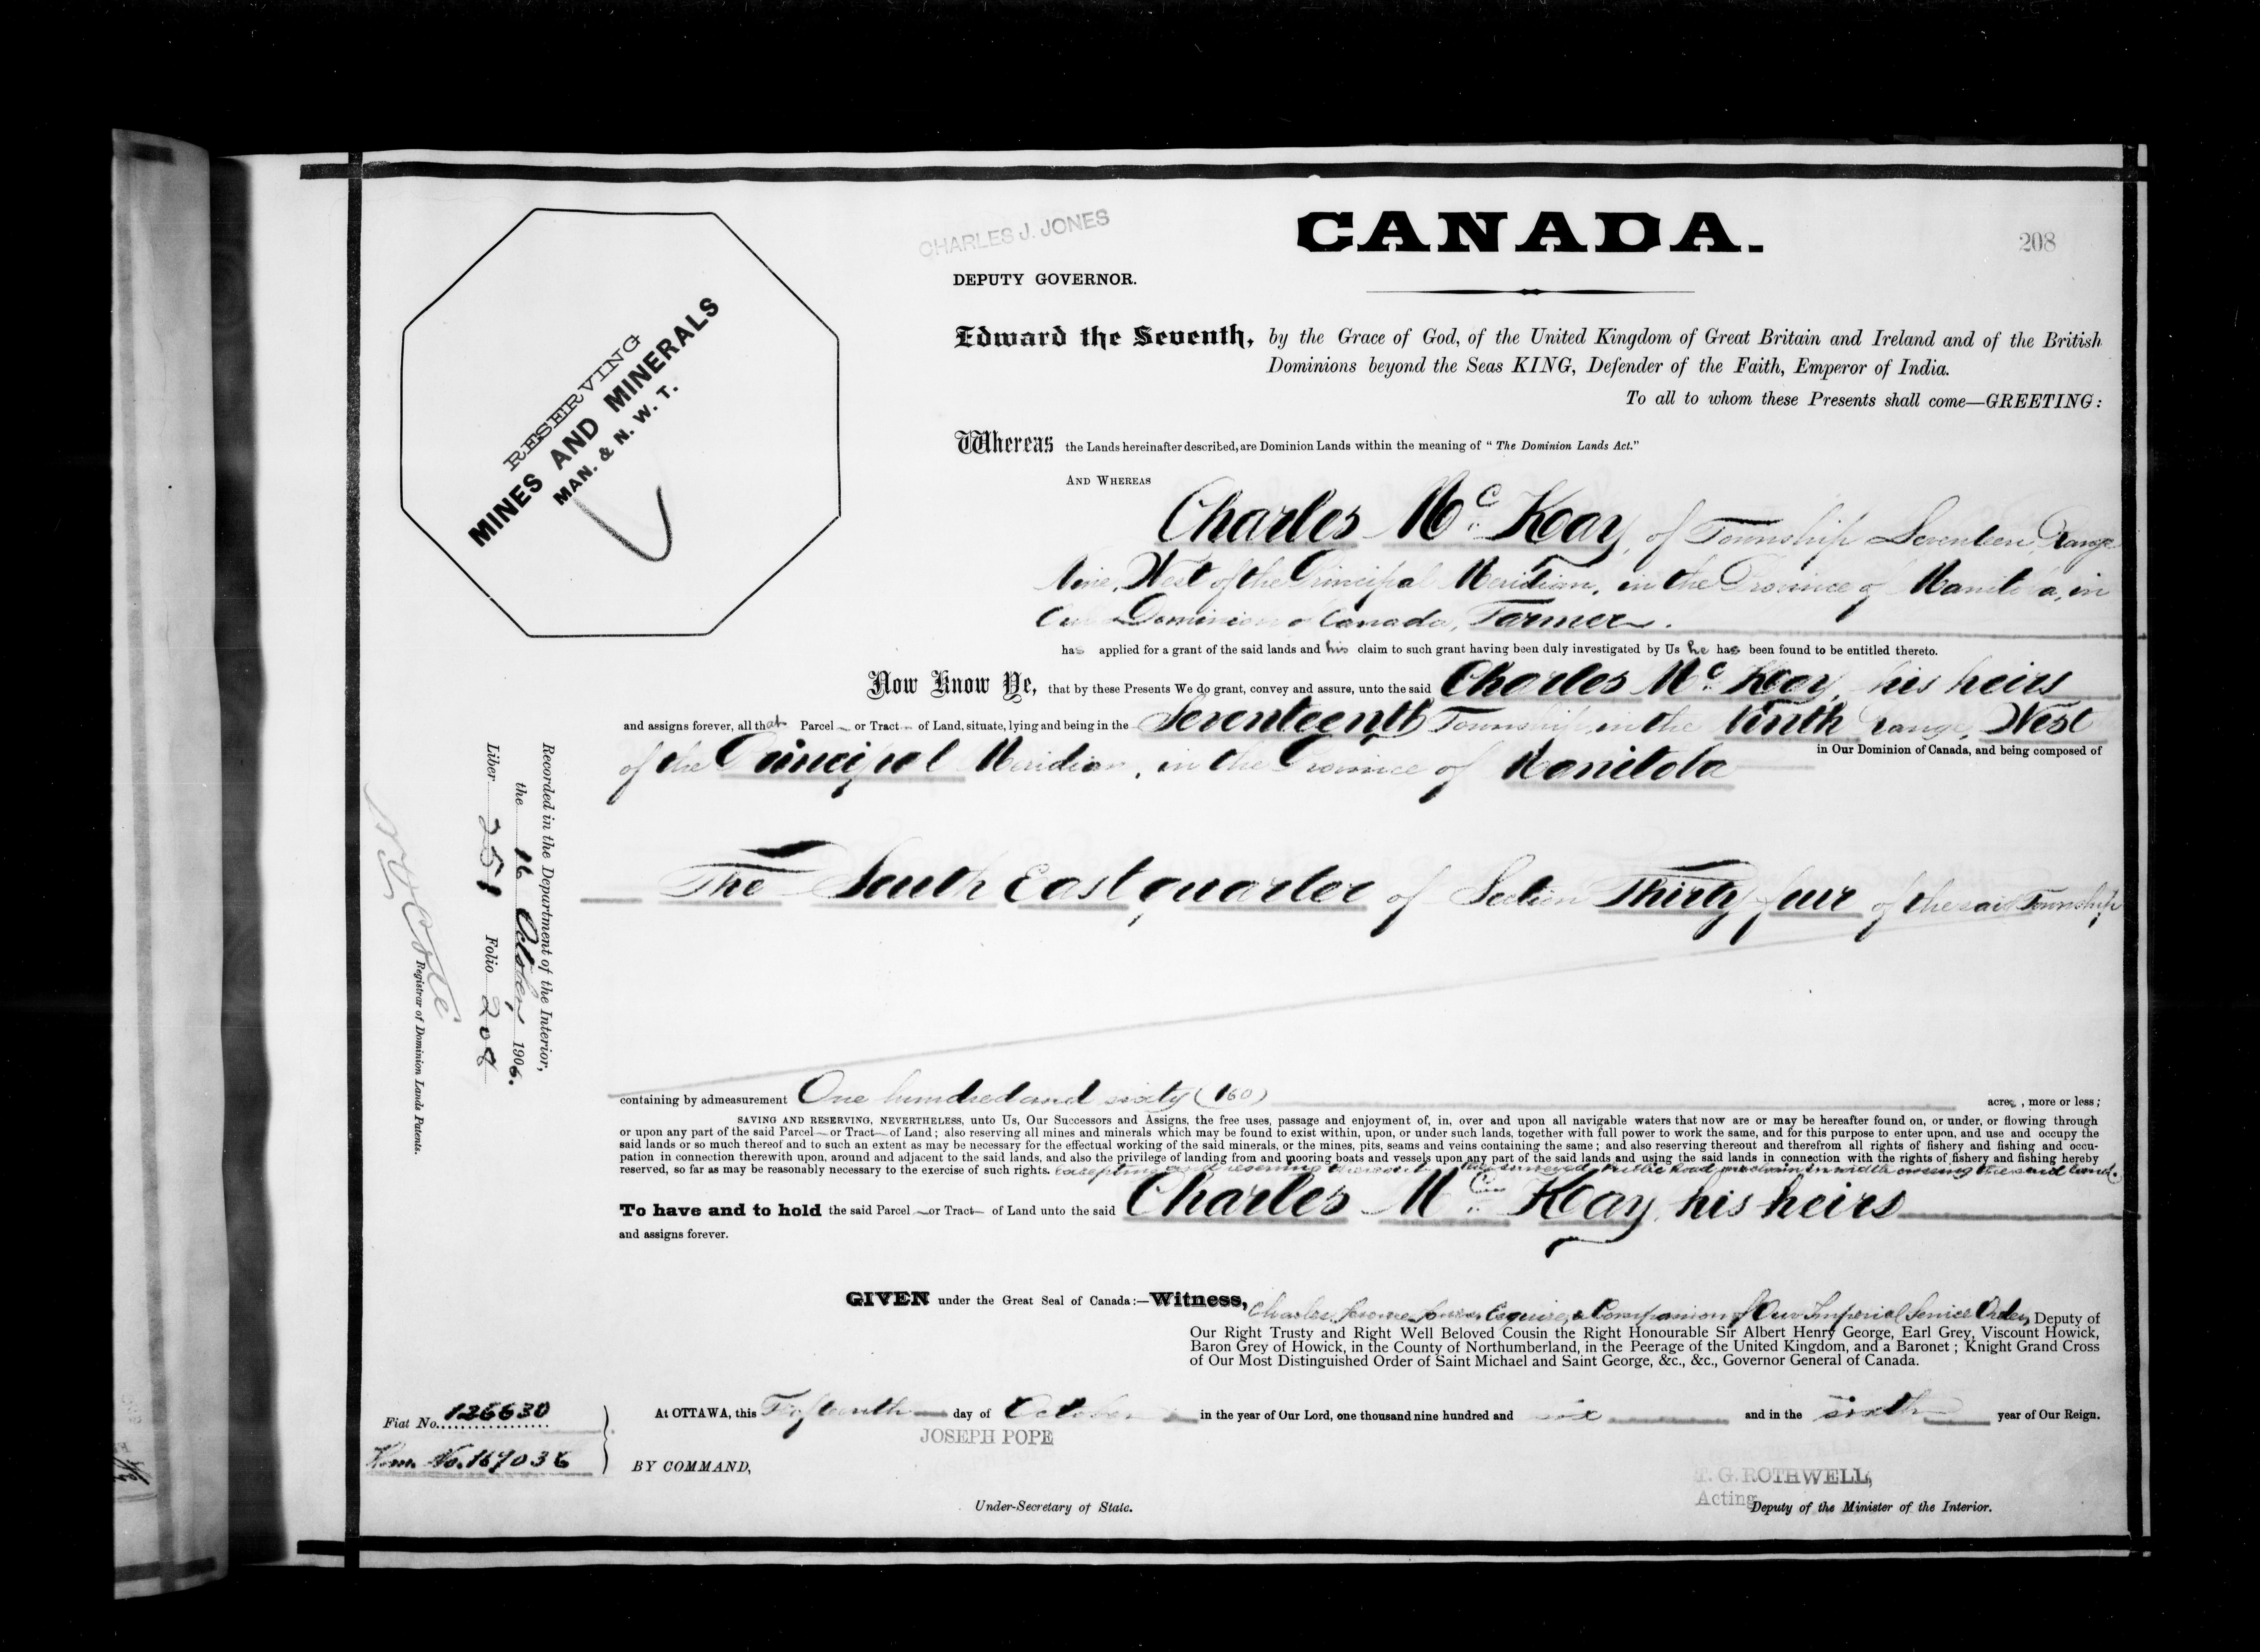 CHARLES J. JONES
CANADA.
208
DEPUTY GOVERNOR.
RESERVING
MINES AND MINERALS
MAN. & N. W. T.
Edward the Seventh, by the Grace of God, of the United Kingdom of Great Britain and Ireland and of the British
Dominions beyond the Seas KING, Defender of the Faith, Emperor of India.
To all to whom these Presents shall come—GREETING:
Whereas the Lands hereinafter described, are Dominion Lands within the meaning of "The Dominion Lands Act."
AND WHEREAS
Charles McKay, of Township Seventeen, Range
Nine, West of the Principal Meridian, in the Province of Manitoba, in
Our Dominion of Canada, Farmer.
has applied for a grant of the said lands and his claim to such grant having been duly investigated by Us he has been found to be entitled thereto.
Now Know Ye, that by these Presents We do grant, convey and assure, unto the said Charles McKay, his heirs
and assigns forever, all that Parcel or Tract of Land, situate, lying and being in the Seventeenth Township, in the Tenth Range, West
of the Principal Meridian, in the Province of Manitoba in Our Dominion of Canada, and being composed of
The South East quarter of Section Thirty four of the said Township
Recorded in the Department of the Interior,
the 16 October 1906.
Liber 251 Folio 208
N O Coté
Registrar of Dominion Lands Patents.
containing by admeasurement One hundred and sixty (160) acres, more or less;
SAVING AND RESERVING, NEVERTHELESS, unto Us, Our Successors and Assigns, the free uses, passage and enjoyment of, in, over and upon all navigable waters that now are or may be hereafter found on, or under, or flowing through
or upon any part of the said Parcel—or Tract—of Land; also reserving all mines and minerals which may be found to exist within, upon, or under such lands, together with full power to work the same, and for this purpose to enter upon, and use and occupy the
said lands or so much thereof and to such an extent as may be necessary for the effectual working of the said minerals, or the mines, pits, seams and veins containing the same; and also reserving thereout and therefrom all rights of fishery and fishing and occu-
pation in connection therewith upon, around and adjacent to the said lands, and also the privilege of landing from and mooring boats and vessels upon any part of the said lands and using the said lands in connection with the rights of fishery and fishing hereby
reserved, so far as may be reasonably necessary to the exercise of such rights. excepting and reserving thereout the surveyed Public Road one chain in width crossing the said land.
To have and to hold the said Parcel—or Tract—of Land unto the said Charles McKay, his heirs
and assigns forever.
GIVEN under the Great Seal of Canada:—Witness, Charles Jerome Jones Esquire, a Companion of Our Imperial Service Order, Deputy of
Our Right Trusty and Right Well Beloved Cousin the Right Honourable Sir Albert Henry George, Earl Grey, Viscount Howick,
Baron Grey of Howick, in the County of Northumberland, in the Peerage of the United Kingdom, and a Baronet; Knight Grand Cross
of Our Most Distinguished Order of Saint Michael and Saint George, &c., &c., Governor General of Canada.
Fiat No. 126630
At OTTAWA, this Fifteenth day of October in the year of Our Lord, one thousand nine hundred and six and in the sixth year of Our Reign.
JOSEPH POPE
Hom. No. 167036
BY COMMAND,
T. G. ROTHWELL,
Acting
Under-Secretary of State.
Deputy of the Minister of the Interior.